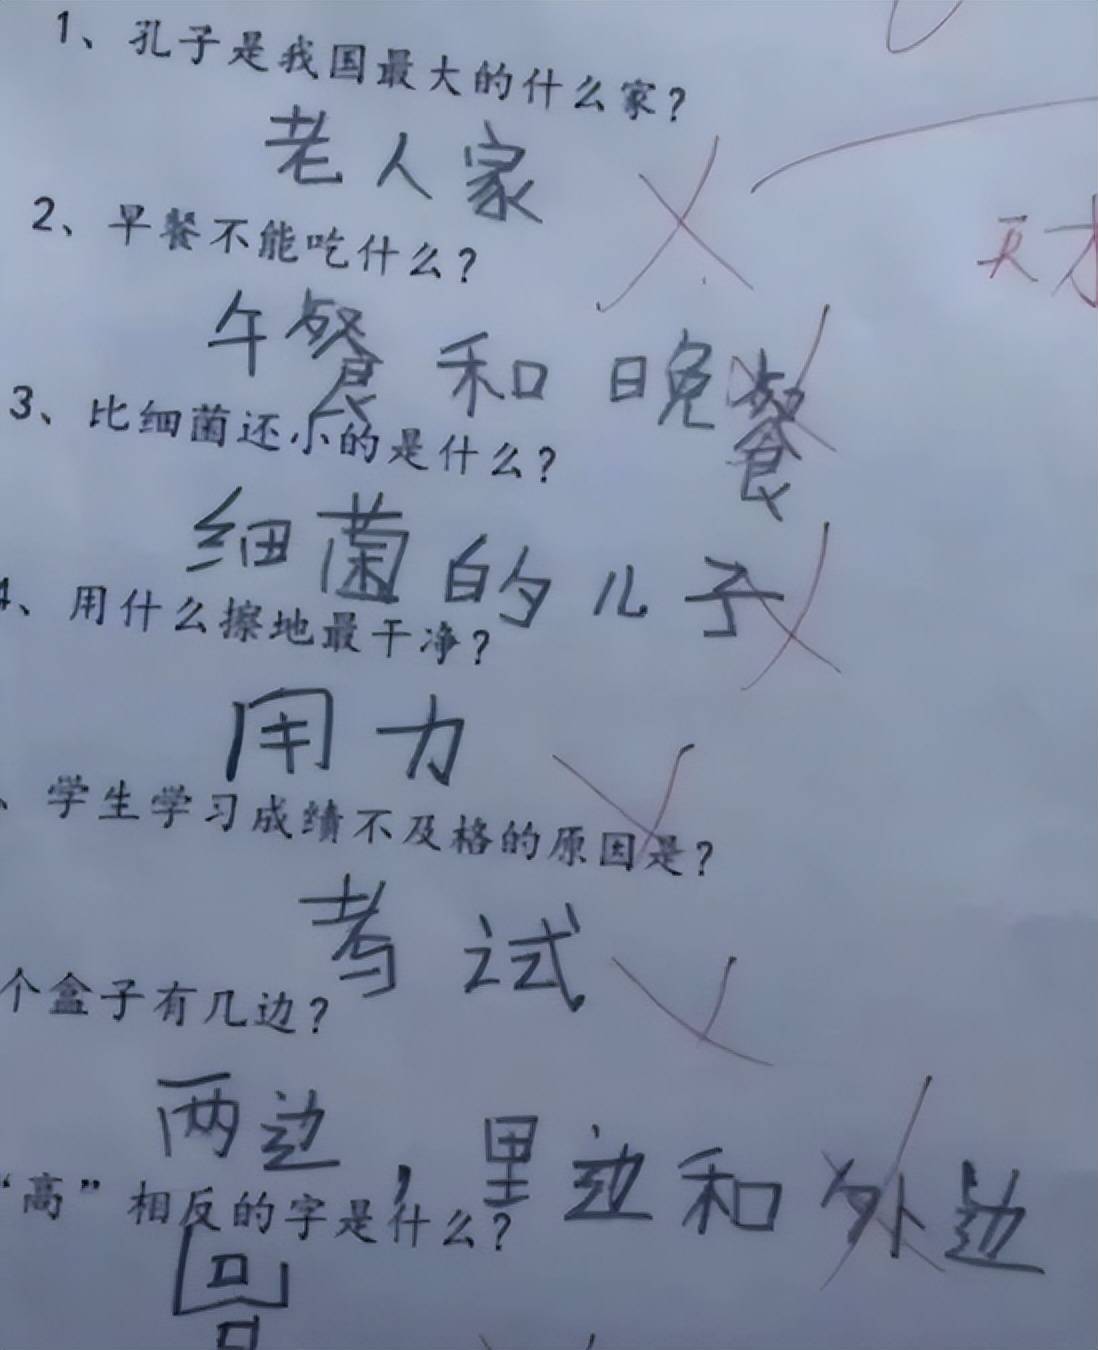 1、孔子是我国最大的什么家?
老人家
2、早餐不能吃什么?
午餐和晚餐
3、比细菌还小的是什么?
细菌的儿子
4、用什么擦地最干净?
用力
、学生学习成绩不及格的原因是?
考试
个盒子有几边?
两边,里边和外边
“高”相反的字是什么?
天才